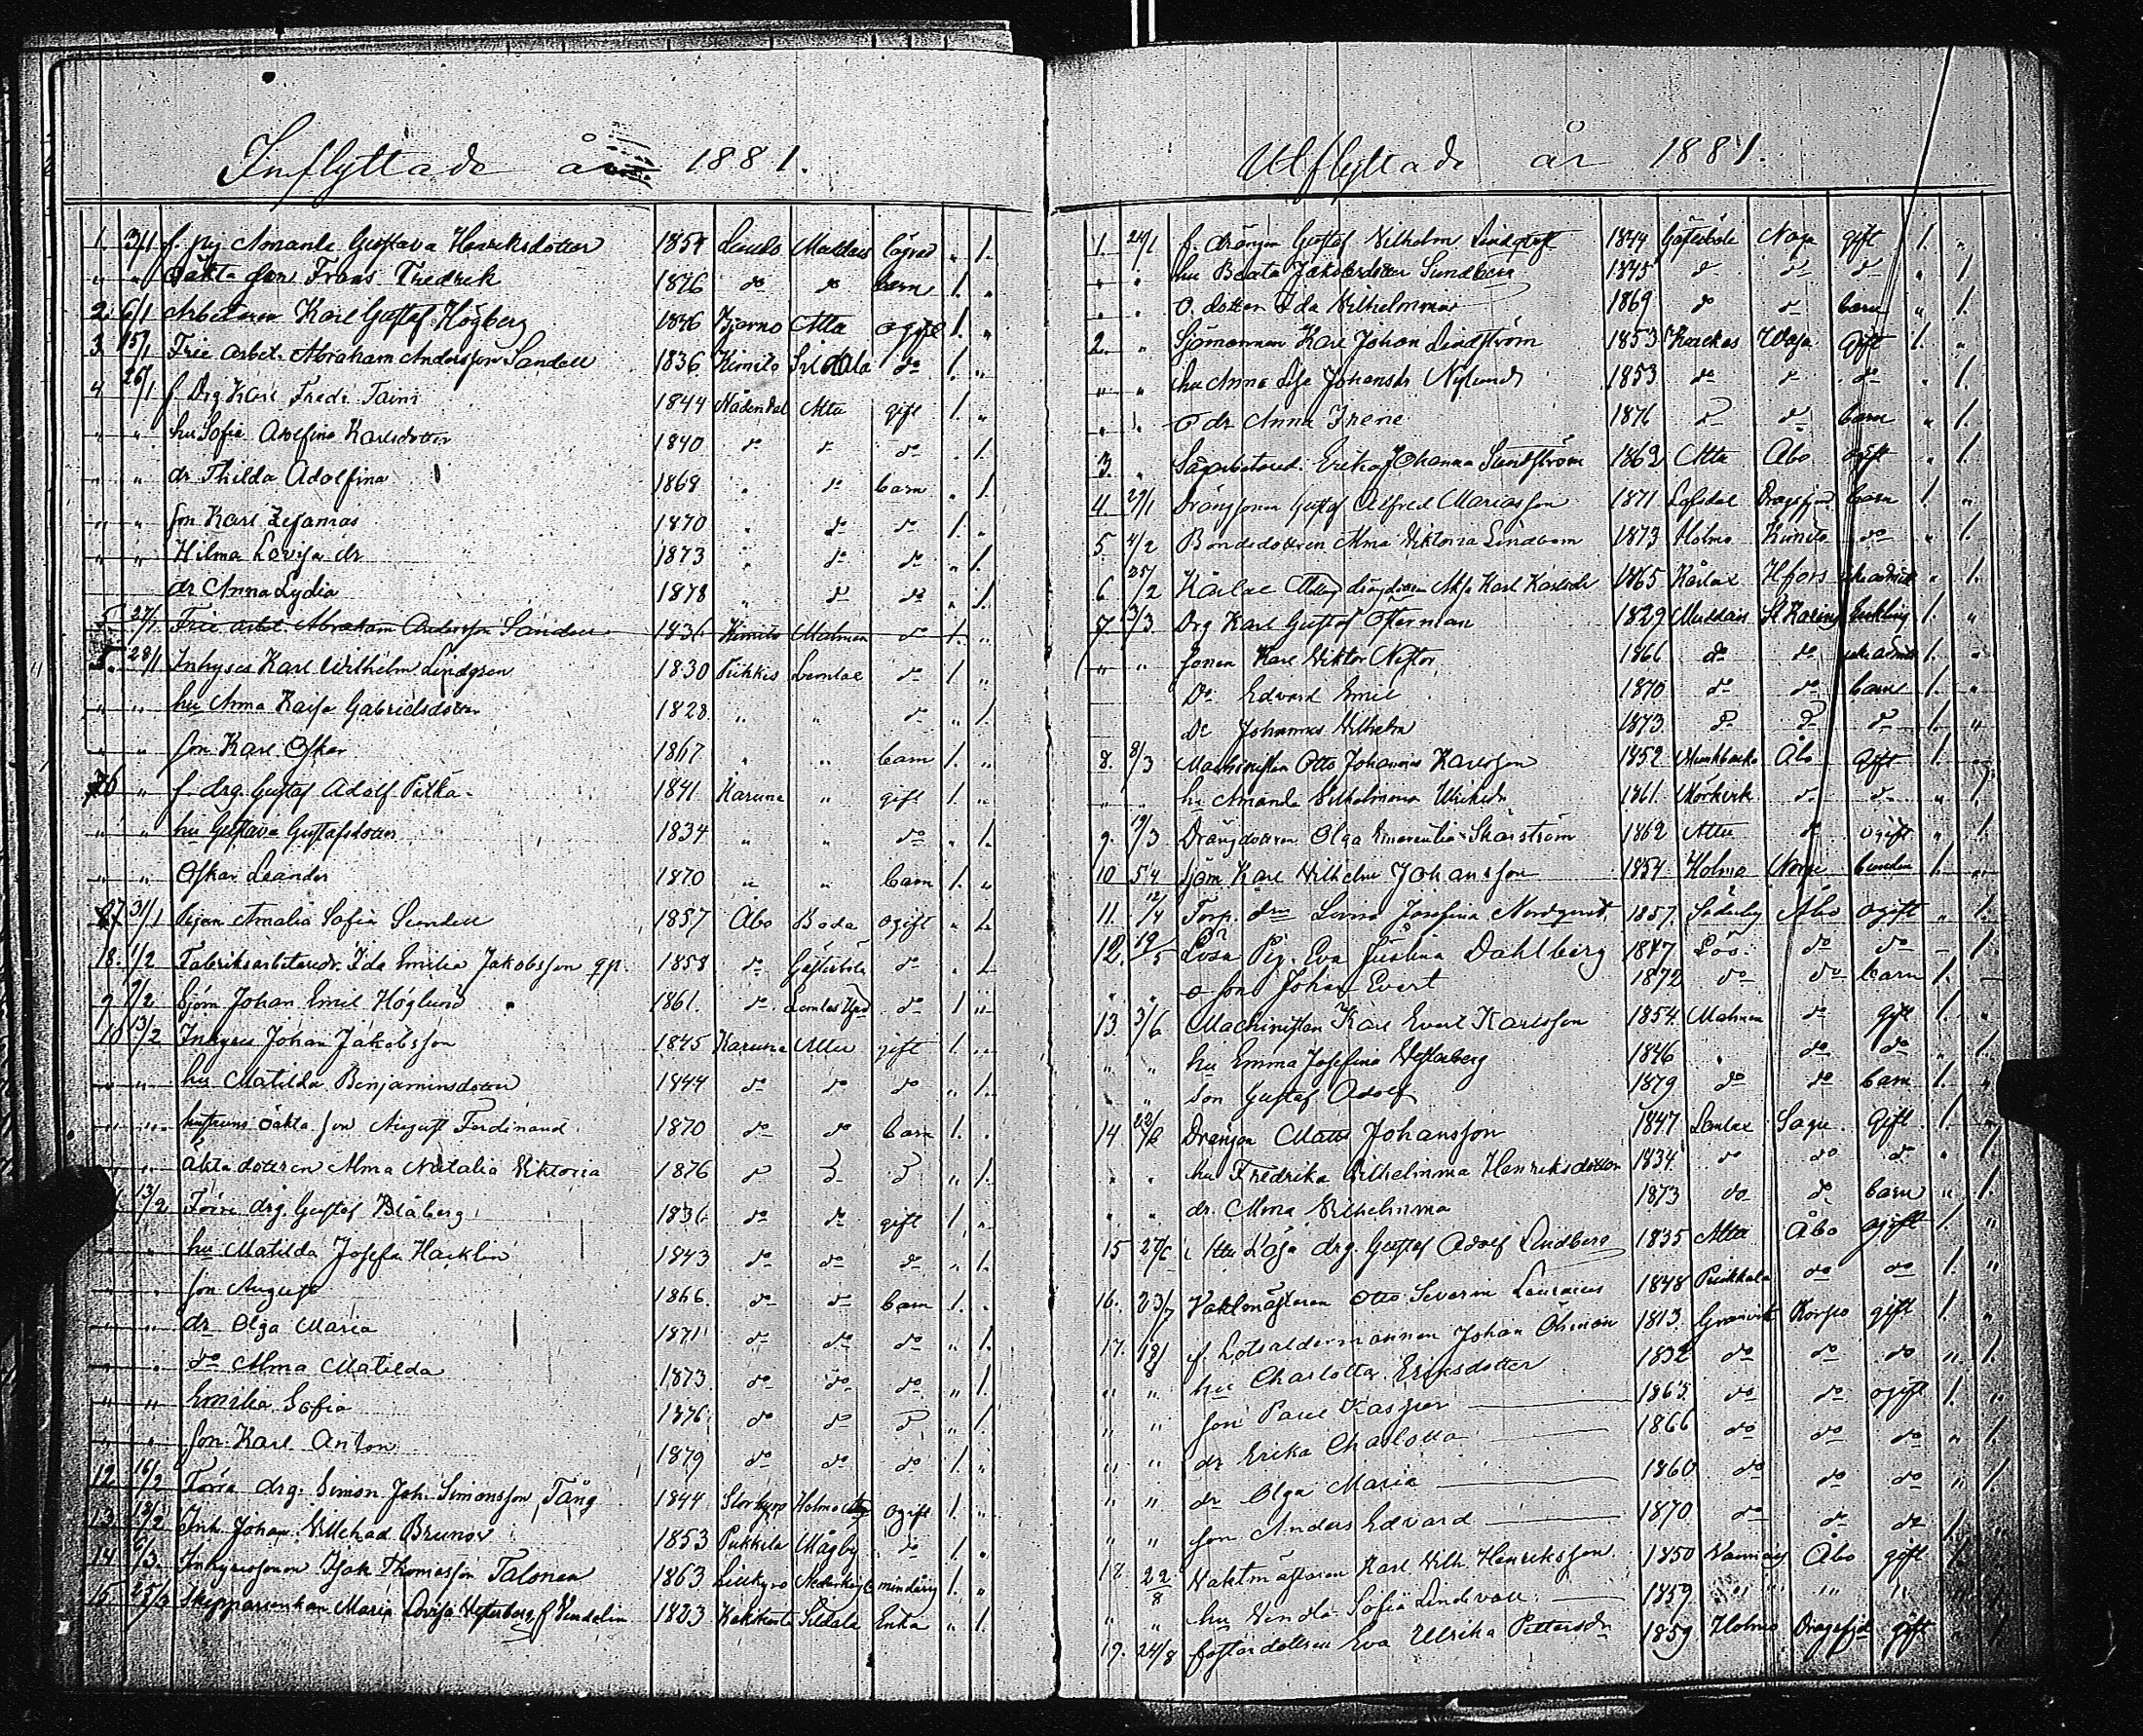 Inflyttade år 1881.
1. 3/1 f. pig Amanda Gustava Henriksdotter 1854 Lundo Muddais lägrad „ 1.
„ „ oäkta son Frans Fredrik 1876 do do barn 1. „
2. 6/1 Arbetaren Karl Gustaf Högberg 1846 Bjerno Attu ogift 1. „
3 15/1 Frie arbet. Abraham Andersson Sandell 1836 Kimito Sildala do 1. „
4 26/1 f. Drg Karl Fredr. Taimi 1844 Nådendal Attu gift 1. „
„ „ hu Sofia Adolfina Karlsdotter 1840 do do do „ 1.
„ „ dr Thilda Adolfina 1868 „ do barn „ 1.
„ „ son Karl 1870 „ do do 1. „
„ „ Hilma Lovisa dr 1873 „ do do „ 1.
dr Anna Lydia 1878 „ do do „ 1.
5 27/1 Frie arbet. Abraham Andersson Sandell 1836 Kimito Malmen do 1. „
5. 28/1 Inhyses Karl Wilhelm Lindgren 1830 Pikkis Lemlax do 1 „
„ „ hu Anna Kajsa Gabrielsdotter 1828 „ „ do „ 1.
„ „ son Karl Oskar 1867 „ „ barn 1. „
6 „ f. drg. Gustaf Adolf Pitkä 1841 Karuna „ gift 1. „
„ „ hu Gustava Gustafsdotter 1834 „ „ do „ 1.
„ „ Oskar Leander 1870 „ „ barn 1. „
7 31/1 Pigan Amalia Sofia Sundell 1857 Åbo Boda ogift „ 1.
8. 1/2 Fabriksarbetaredr. Ida Emilia Jakobsson 1858 do Gästerböle do „ 1.
9 7/2 Sjöm Johan Emil Höglund 1861. do Lemlax do 1 „
10 13/2 Inhyses Johan Jakobsson 1845 Karuna Attu gift 1. „
„ „ hu Matilda Benjaminsdotter 1844 do do do „ 1.
„ „ hustruns oäkta son August Ferdinand 1870 do do barn 1. „
„ „ äkta dottren Alma Natalia Viktoria 1876 do do do „ 1.
13/2 Törra drg. Gustaf Blåberg 1836 do do gift 1. „
„ „ hu Matilda Josefa Hacklin 1843 do do do „ 1.
„ „ son August 1866. do do barn 1. „
„ „ dr Olga Maria 1871 do do do „ 1.
„ „ do Alma Matilda 1873 do do do „ 1.
„ „ Emilia Sofia 1876 do do do „ 1.
„ „ son Karl Anton 1879 do do do 1. „
12 16/2 Törra drg. Simon Joh. Simonsson Tång 1844 Storkyro Holmo ogift 1. „
13 18/2 Inh. Johan Brunov 1853 Pikkila Mågby do 1. „
14 6/3 Inhysessonen Isak Thomasson Talonen 1863 Lillkyro minderårig 1. „
15 25/3 Skepparenkan Maria Lovisa Westerberg f Vendelin 1823 Kakskerta Sildala Enka „ 1.
Utflyttade år 1881.
1. 24/1 f. drängen Gustaf Vilhelm Lindqvist 1844 Gästerböle Nagu gift 1. „
„ „ hu Beata Jakobsdotter Sundberg 1845 do do do „ 1.
„ „ o. dotter Ida Vilhelmina 1869 do do barn „ 1.
2. „ Sjömannen Karl Johan Lindström 1853 Wasa gift 1. „
„ „ hu Anna Lisa Johansdr Nylund 1853 do do do „ 1.
„ „ o dr Anna Irene 1876 do do barn „ 1.
3. „ Sågarbetared. Erika Johanna Sundström 1862 Attu Åbo ogift „ 1.
4 27/1 Drängsonen Gustaf Alfred Mariasson 1871 Lofsdal Dragsfjerd barn 1. „
5 4/2 Bondedottren Alma Viktoria Lindbom 1873 Holmo Kimito do „ 1.
6 25/2 Kärlax drängdottren Karl Karlsdr 1865 Kärlax Hfors „ 1.
7 3/3 Drg Karl Gustaf Österman 1829 Muddais St Karins Enkling 1. „
„ „ sonen Karl Viktor Nestor 1866 do do 1. „
Do Edvard Emil 1870 do do barn 1. „
Do Johannes Vilhelm 1873 do do do 1. „
8. 8/3 Machinisten Otto Johannes Karlsson 1852 Munkbacka Åbo Gift 1. „
„ „ hu Amanda Vilhelmina Ulriksdr 1861. Mörkvik do do „ 1.
9. 19/3 Drängdottren Olga Emerentia Skärström 1862 Attu do ogift „ 1.
10 5/4 Sjöm Karl Vilhelm Johansson 1854 Holma Norge 1. „
11. 12/4 Torp. drn Lovisa Josefina Nordqvist 1857. Söderby Åbo ogift „ 1.
12. 19/5 Lösa Pig. Eva Justina Dahlberg 1847 Löö. do do – 1.
„ „ o son Johan Evert 1872 do do barn 1. „
13. 3/6 Machinisten Karl Evert Karlsson 1854. Malmen do gift 1. „
„ „ hu Emma Josefina Westerberg 1846 „ do do „ 1.
„ „ son Gustaf Adolf 1879 do do barn 1. „
14 22/6 Drängen Matts Johansson 1847 Lemlax Sagu. Gift. 1. „
„ „ hu Fredrika Vilhelmina Henriksdotter 1834 do do do „ 1.
„ „ dr. Alma Vilhelmina 1873 do do barn „ 1.
15 27/6 Attu Lösa drg. Gustaf Adolf Lindberg 1835 Attu Åbo ogift 1. „
16. 23/7 Vaktmästaren Otto Severin Laurenius 1848 do do 1. „
17. 18/8 f. Lotsåldermannen Johan Öhman 1813 Granvik Korpo gift 1. „
„ „ hu Charlotta Eriksdotter 1832 do do do „ 1.
„ „ son Paul Kasper 1863. do do ogift 1. „
„ „ dr Erika Charlotta 1866 do do do „ 1.
„ „ dr Olga Maria 1860 do do do „ 1.
„ „ son Anders Edvard 1870 do do do 1. „
18 22/8 Vaktmästaren Karl Vilh. Henriksson 1850 Åbo gift 1. „
„ „ hu Vendla Sofia Lindevall 1859 „ „ „ „ 1.
19. 24/8 fosterdottren Eva Ulrika Pettersdr 1859 Holmo Dragsfjd gift „ 1